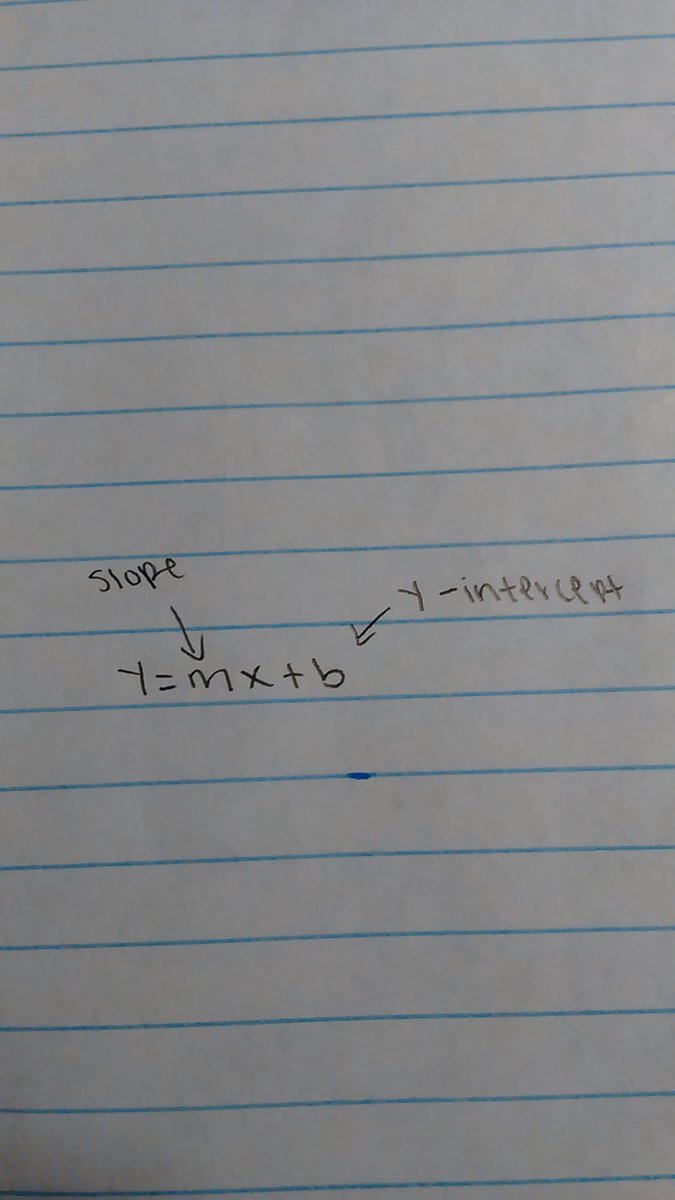 slope
y-intercept
y=mx+b